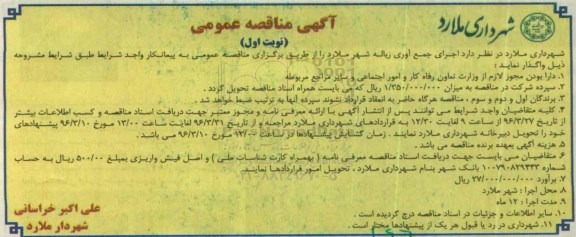 شهرداری ملارد
آگهی مناقصه عمومی
(نوبت اول)
شهرداری ملارد در نظر دارد اجرای جمع آوری زباله شهر ملارد را از طریق برگزاری مناقصه عمومی به پیمانکار واجد شرایط طبق شرایط مشروحه
ذیل واگذار نماید :
۱. دارا بودن مجوز لازم از وزارت تعاون رفاه کار و امور اجتماعی و سایر مراجع مربوطه
۲. سپرده شرکت در مناقصه به میزان ۱/۳۵۰/۰۰۰/۰۰۰ ریال که می بایست همراه اسناد مناقصه تحویل گردد .
۳. برندگان اول و دوم و سوم ، مناقصه هرگاه حاضر به انعقاد قرارداد نشوند سپرده آنها به ترتیب ضبط خواهد شد .
۴. کلیه متقاضیان واجد شرایط می توانند پس از انتشار آگهی با ارائه معرفی نامه و مجوز معتبر جهت دریافت اسناد مناقصه و کسب اطلاعات بیشتر
از تاریخ ۹۶/۲/۲۷ از ساعت ۹ لغایت ۱۲/۳۰ به قراردادهای شهرداری ملارد مراجعه و از تاریخ ۹۶/۲/۳۱ لغایت ساعت ۱۳/۰۰ مورخ ۹۶/۳/۱۰ پیشنهادهای
خود را تحویل دبیرخانه شهرداری ملارد نمایند . زمان گشایش پیشنهادها در ساعت ۱۳/۰۰ مورخ ۹۶/۳/۱۰ می باشد .
۵. هزینه آگهی بعهده برنده مناقصه می باشد .
۶. متقاضیان می بایست جهت دریافت اسناد مناقصه معرفی نامه ( بهمراه کارت شناسایی ملی ) و اصل فیش واریزی بمبلغ ۵۰۰/۰۰۰ ریال به حساب
شماره ۱۰۰۷۹۰۸۲۹۴۳۳ بانک شهر بنام شهرداری ملارد ، تحویل امور قراردادها نمایند.
۷. برآورد ۲۷/۰۰۰/۰۰۰/۰۰۰ ریال
۸. محل اجرا : شهر ملارد
۹. مدت اجرا : ۱۲ ماه
۱۰. سایر اطلاعات و جزئیات در اسناد مناقصه درج گردیده است .
۱۱. شهرداری در رد یا قبول هر یک از پیشنهادها مختار است .
علی اکبر خراسانی
شهردار ملارد